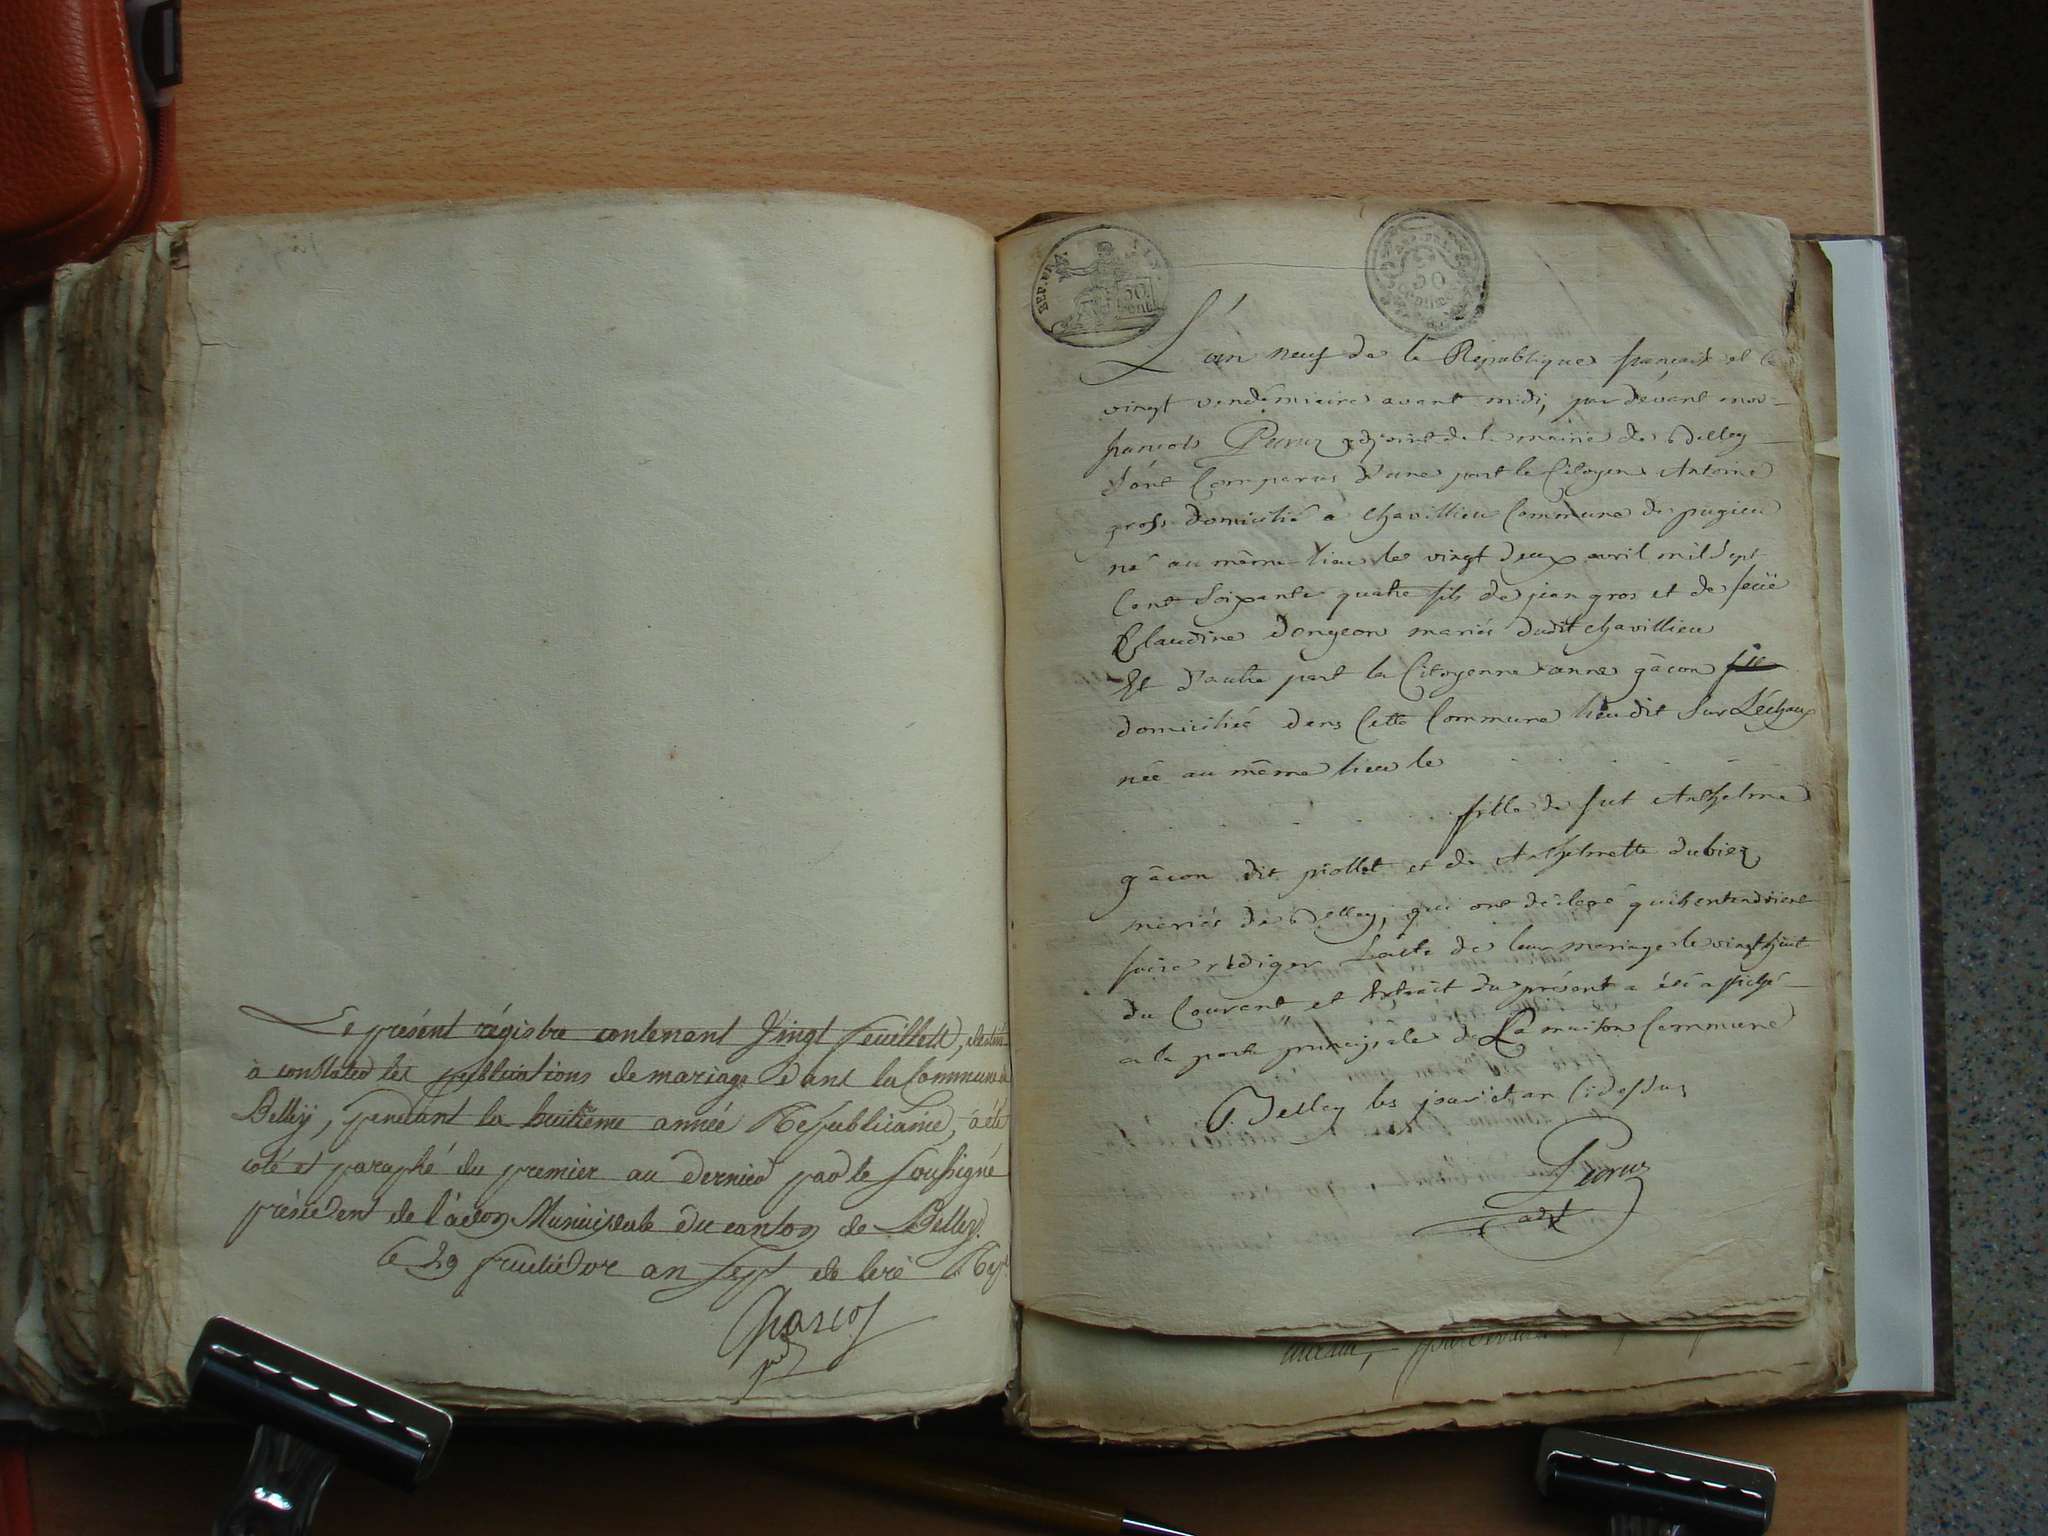 Le présent régistre contenant Vingt feuillets, destiné
à constater les publications de mariage dans la Commune de
Belley, pendant la huitième année Republicaine, a été
coté et paraphé du premier au dernier par le Soussigné
président de l'adon Municipale du canton de Belley.
le 29 fructidor an sept de l'ere Rep
REP. FRA.
50
Cent
50
Centimes
L'an neuf de la République français et le
vingt vendémiaire avant midi, par dévant moi
françois Peruz adjoint de la mairie de Belley
dont Comparus d'une part le Citoyen Antoine
gross domicilié a Chavillieu Commune de pugieu
né au même lieu le vingt deux avril mil sept
Cent Soixante quatre fils de jean gros et de feüe
Claudine dongeon mariés dudit chavillieu
Et d'autre part la Citoyenne anne gâcon
domiciliée dans Cette Commune lieu dit Sur Léchaux
née au même lieu le
fille de fut Anthelme
gâcon dit piollet et de Anthelmette dubiez
mariés de Belley, qui ont déclaré quils entendoient
faire rédiger Lacte de leur mariage le vingt huit
du Courant, et Extrait du présent a été affiché
a la porte principale de La maison Commune
Belley les jour et an Cidessus
Peruz
adjt